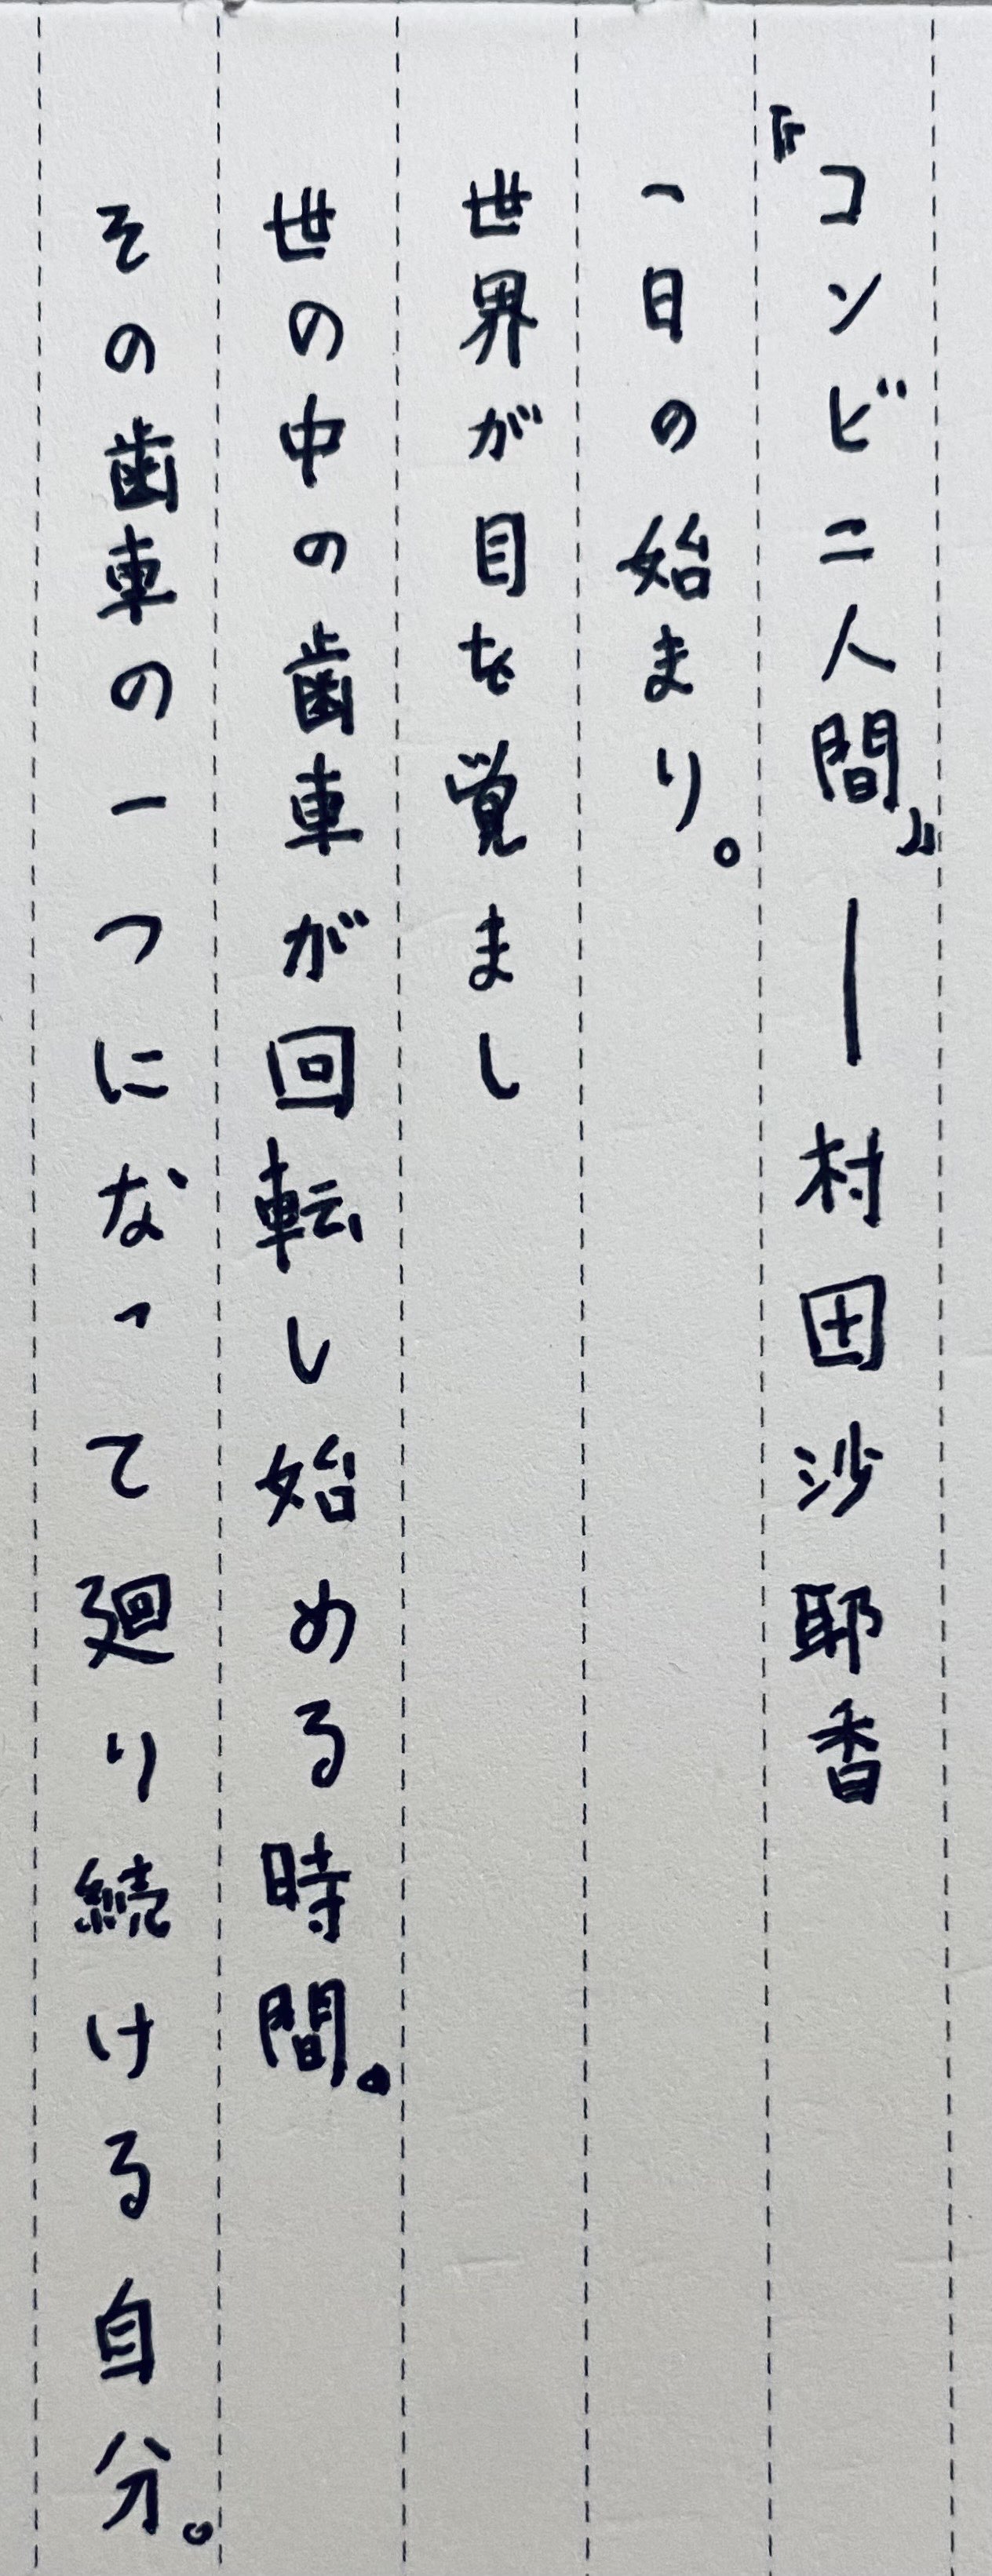 『コンビニ人間』―村田沙耶香
一日の始まり。
世界が目を覚まし
世の中の歯車が回転し始める時間。
その歯車の一つになって廻り続ける自分。